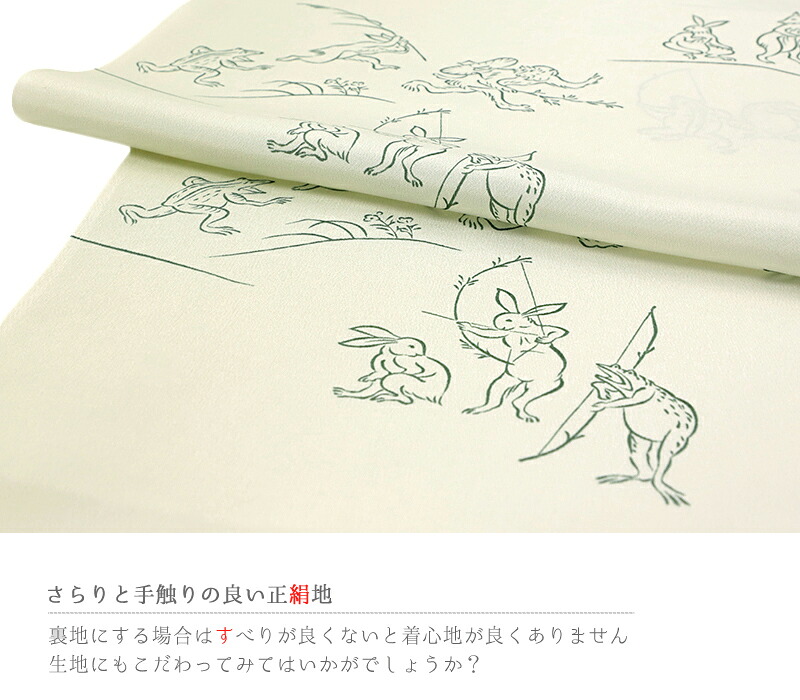 さらりと手触りの良い正絹地
裏地にする場合はすべりが良くないと着心地が良くありません
生地にもこだわってみてはいかがでしょうか？